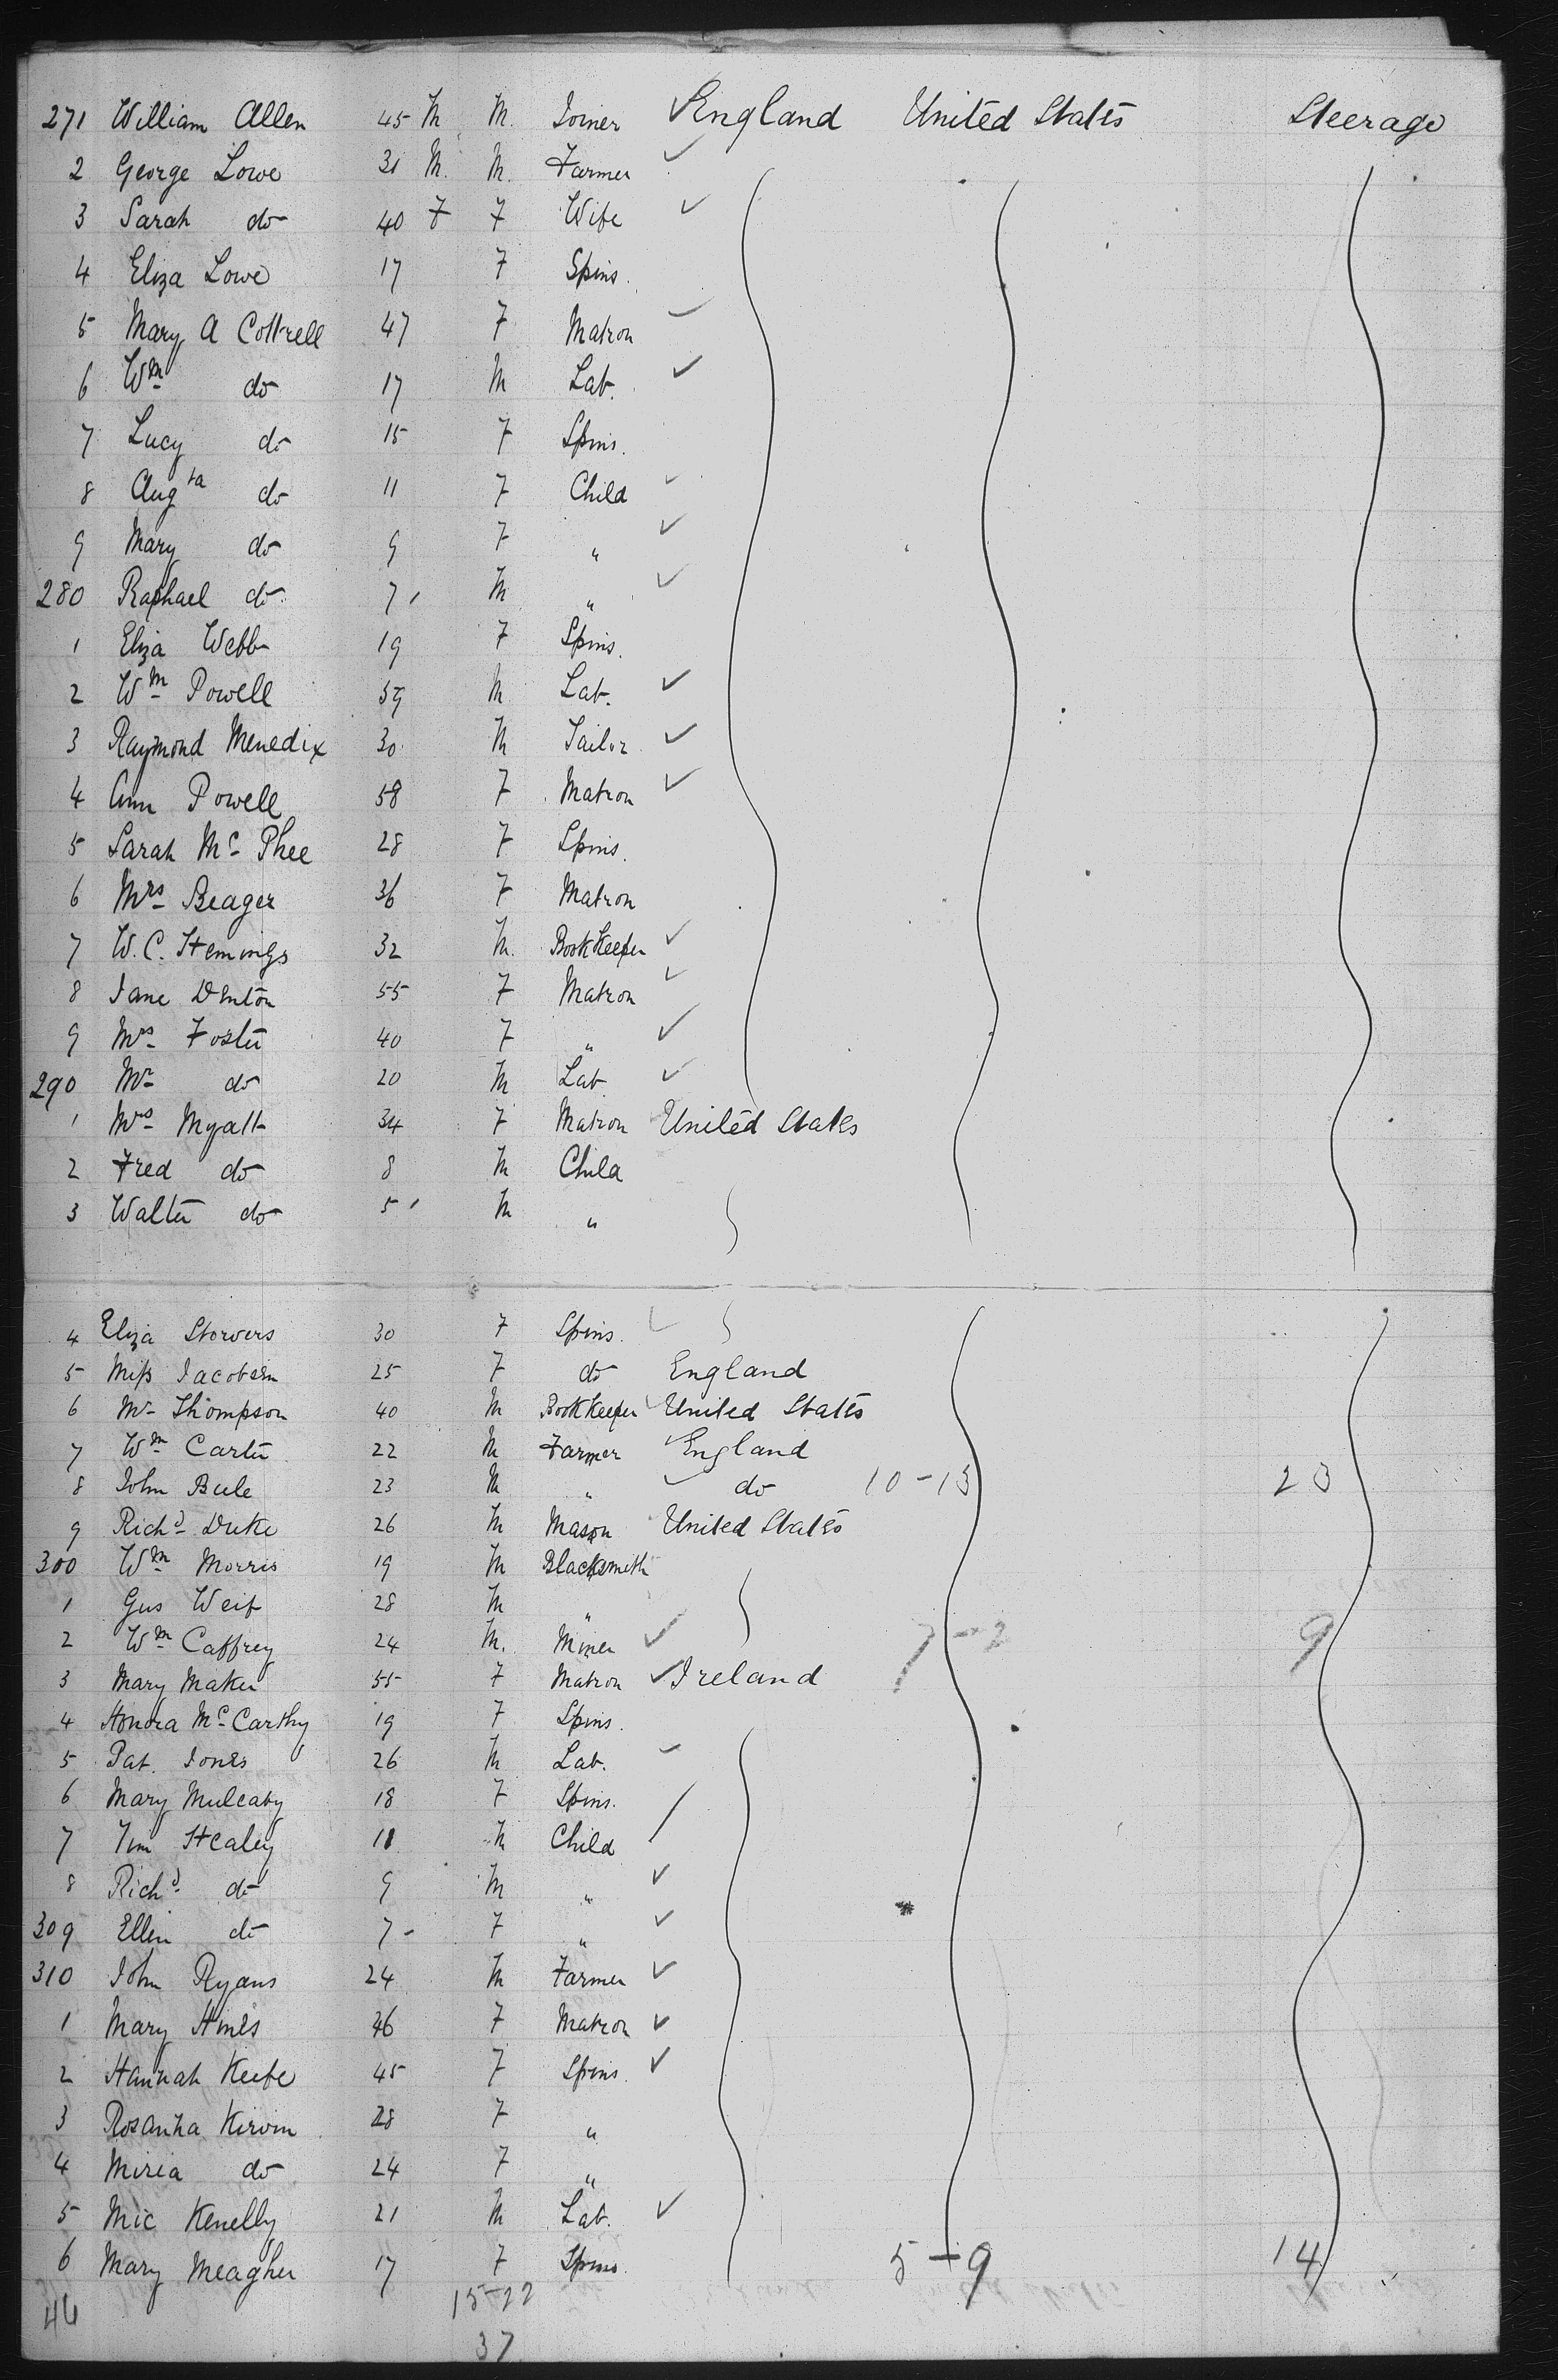 271 William Allen 45 M M. Joiner England United States Steerage
2 George Lowe 31 M. M. Farmer
3 Sarah do 40 F F Wife
4 Eliza Lowe 17 F Spins.
5 Mary A Cottrell 47 F Matron
6 Wm do 17 M Lab.
7 Lucy do 15 F Spins.
8 Augta do 11 F Child
9 Mary do 9 F "
280 Raphael do 7 M "
1 Eliza Webb 19 F Spins.
2 Wm Powell 59 M Lab.
3 Raymond Menedix 30 M Tailor
4 Ann Powell 58 F Matron
5 Sarah Mc Phee 28 F Spins.
6 Mrs Beager 36 F Matron
7 W. C. Hemings 32 M. BookKeeper
8 Jane Denton 55 F Matron
9 Mrs Foster 40 F "
290 Mr do 20 M Lab.
1 Mrs Myatt 34 F Matron United States
2 Fred do 8 M Child
3 Walter do 5 M "
4 Eliza Storvers 30 F Spins.
5 Miss Jacobsen 25 F do England
6 Mr Thompson 40 M BookKeeper United States
7 Wm Carter 22 M Farmer England
8 John Bule 23 M " do 10-13 23
9 Richd Duke 26 M Mason United States
300 Wm Morris 19 M Blacksmith
1 Gus Weif 28 M "
2 Wm Caffrey 24 M. Miner 7-2 9
3 Mary Maher 55 F Matron Ireland
4 Honora Mc Carthy 19 F Spins.
5 Pat. Jones 26 M Lab.
6 Mary Mulcahy 18 F Spins.
7 Tim Healey 11 M Child
8 Richd do 9 M "
309 Ellen do 7 F "
310 John Ryans 24 M Farmer
1 Mary Hines 46 F Matron
2 Hannah Keefe 45 F Spins.
3 Rosanna Kirvin 28 F "
4 Miria do 24 F "
5 Mic Kenelly 21 M Lab.
6 Mary Meagher 17 F Spins. 5-9 14
46 15-22
37